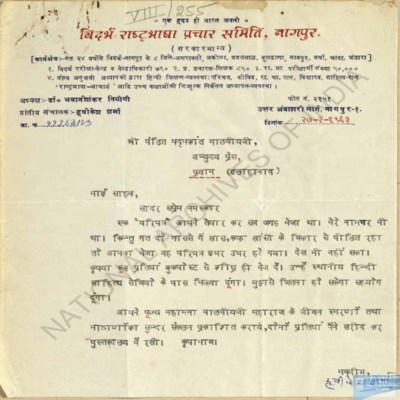 VIII/255
एक हृदय हो भारत जननी
विदर्भ राष्ट्रभाषा प्रचार समिति, नागपुर.
(सरकारमान्य)
अध्यक्ष:- डॉ॰ भवानीशंकर नियोगी
प्रांतीय संचालक:- हृषीकेश शर्मा
जा. क्र.
फोन नं. २३५१
उत्तर अंबाझरी मार्ग, नागपुर-१.
दिनांक २७-२-१९६३
श्री पंडित पद्मकांत मालवीयजी,
अभ्युदय प्रेस,
प्रयाग (इलाहाबाद)
भाई साहब,
सादर सप्रेम नमस्कार
एक "परिपत्र" आपने तैयार कर सब जगह भेजा था। मेरे नामपर भी
था। किन्तु गत दो मासमें मैं सास, कफ खांसी के विकार से पीडित रहा
तो आपका भेजा वह परिपत्र इधर उधर हो गया। देख भी नहीं सका।
कृपया कुछ प्रतियां बुकपोस्ट से शीघ्र ही भेज दें। उन्हें स्थानीय हिन्दी
साहित्य सेवियों के पास भिजवा दूंगा। मुझसे जितना हो सकेगा सहयोग
दूंगा।
आपने पूज्य महामना मालवीयजी महाराज के जीवन स्मरणों तथा
भाषणोंका सुन्दर संकलन प्रकाशित कराये, दोनों प्रतियां मैंने खरीद कर
पुस्तकालय में रखी। कृपाभाव।
भवदीय,
NATIONAL ARCHIVES OF INDIA